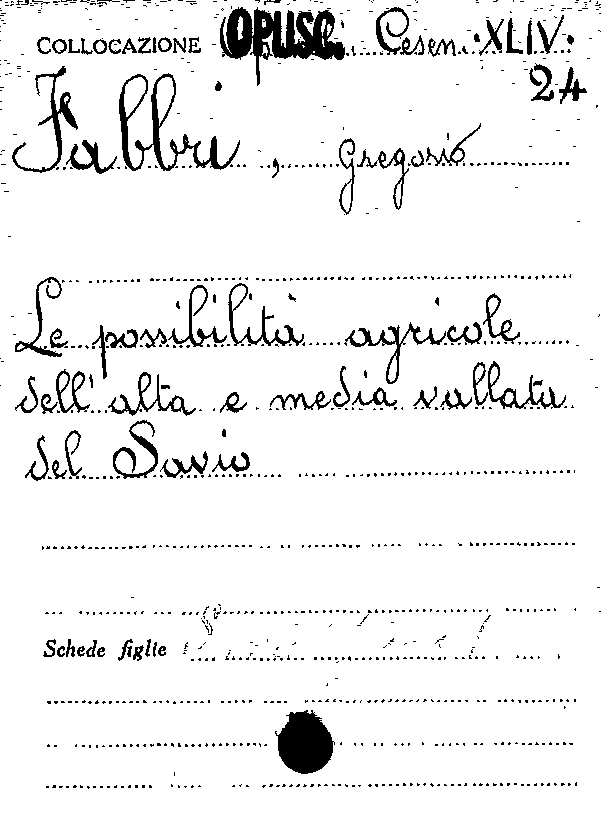 COLLOCAZIONE OPUSC. Cesen. XLIV.
24
Fabbri, Gregorio
Le possibilità agricole
dell'alta e media vallata
del Savio
Schede figlie